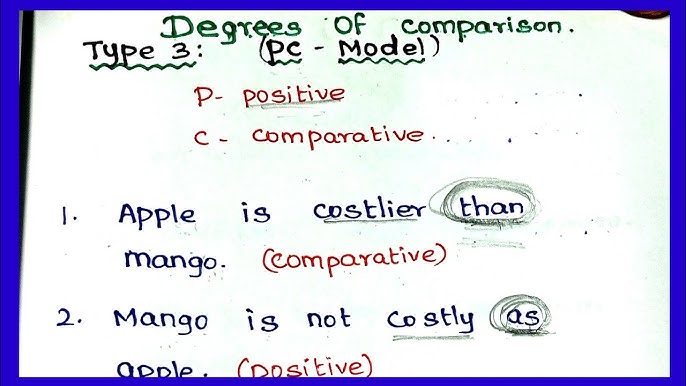 Degrees Of comparison.
Type 3: (PC - Model)
P- positive
C - comparative...
1. Apple is costlier than
mango. (comparative)
2. Mango is not costly as
apple. (positive)